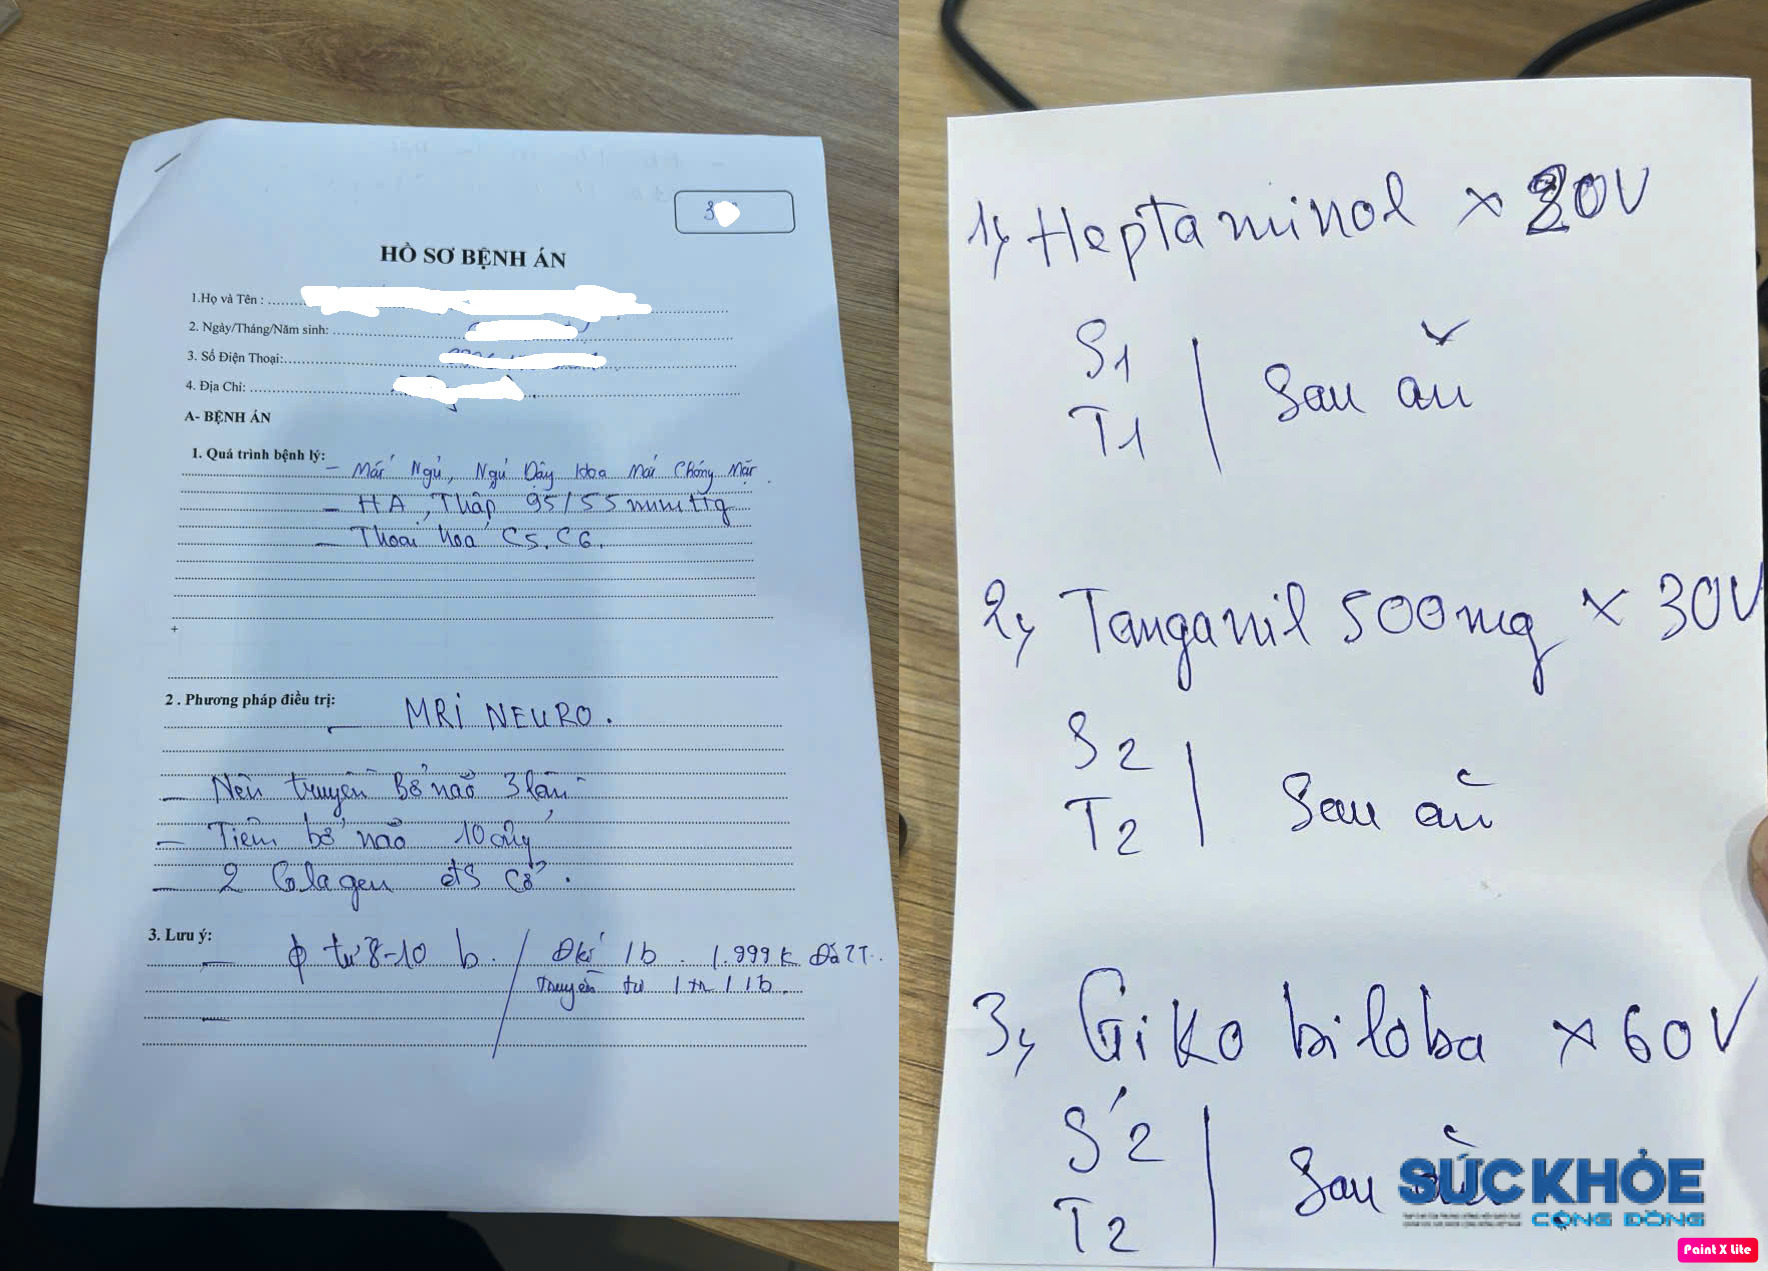 HỒ SƠ BỆNH ÁN
1.Họ và Tên :
2. Ngày/Tháng/Năm sinh:
3. Số Điện Thoại:
4. Địa Chỉ:
A- BỆNH ÁN
1. Quá trình bệnh lý:
- Mất Ngủ, Ngủ Dậy Hoa Mắt Chóng Mặt
- HA, Thấp 95/55 mmHg
- Thoái hoá C5. C6.
+
2 . Phương pháp điều trị:
- MRi NEURO.
- Nên truyền Bổ não 3 lần
- Tiêm bổ não 10 ống
- 2 Colagen đts cổ.
3. Lưu ý:
- từ 8-10 b. / Đkí 1b. 1.999k Đã TT.
Truyền từ 1 1b.
1, Heptaminol x 20V
S1
T1 | Sau ăn
2, Tanganil 500mg x 30V
S2
T2 | Sau ăn
3, GiKo biloba x 60V
S2
T2 | Sau ăn
SỨC KHỎE
CỘNG ĐỒNG
Paint X Lite